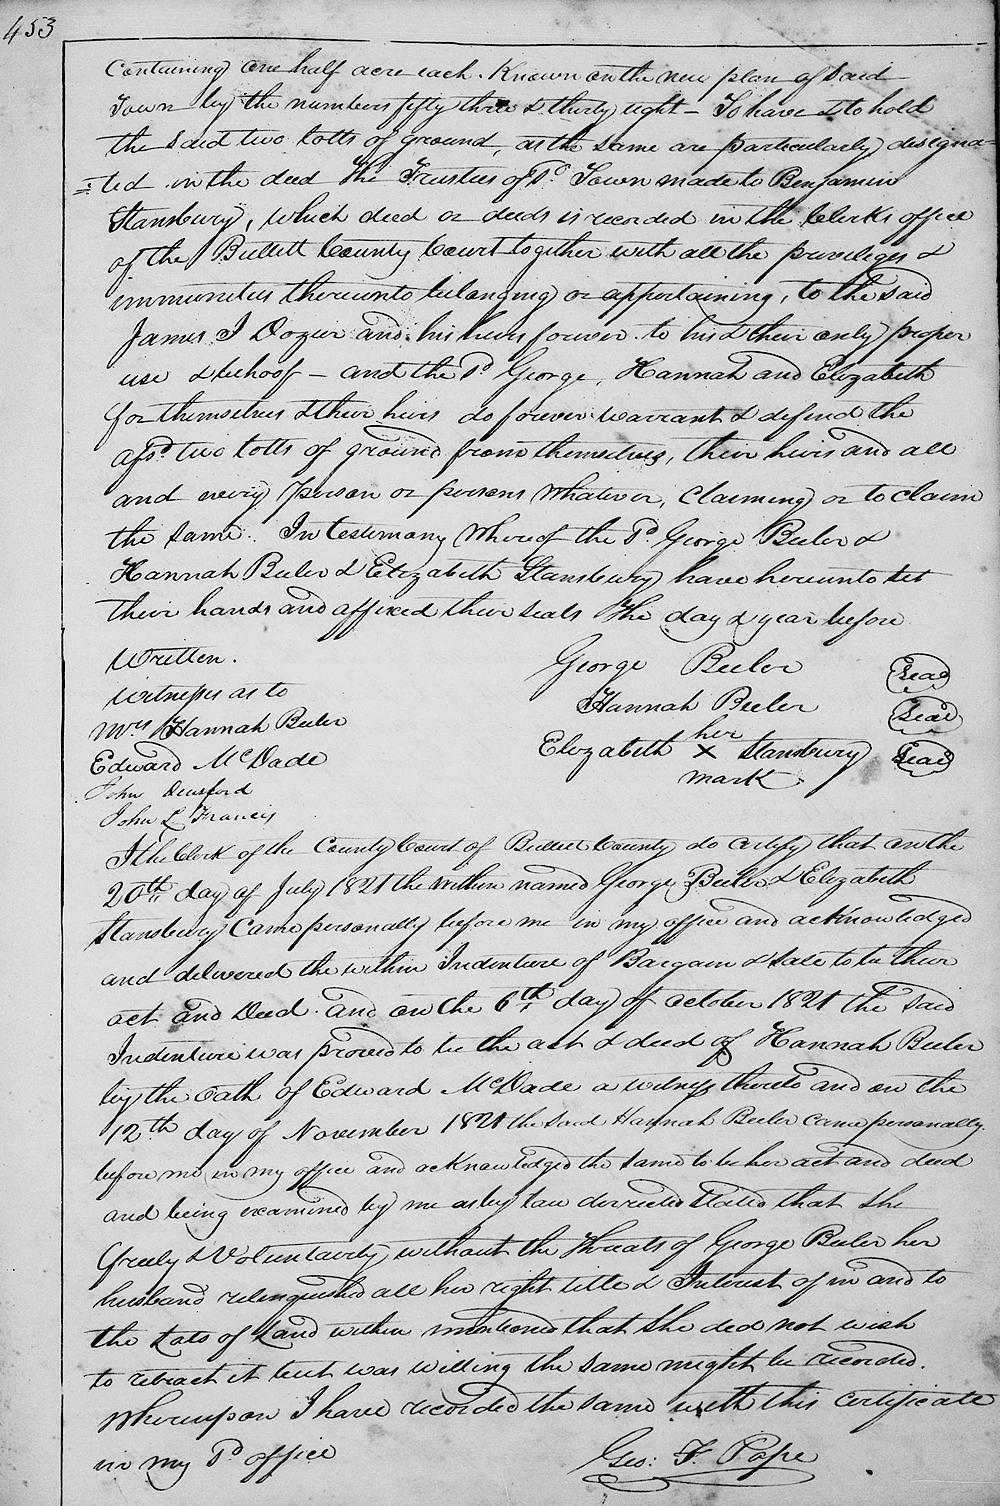 453
Containing one half acre each. Known on the new plan of said
Town by the numbers fifty three & thirty eight – To have & to hold
the said two lotts of ground, as the same are particularly designa-
=ted in the deed the Trustees of sd. Town made to Benjamin
Stansbury, which deed or deeds is recorded in the Clerks office
of the Bullitt County Court together with all the priveliges &
immunities thereunto belonging or appertaining, to the said
James I Dozier and his heirs forever to his & their only proper
use & behoof – and the sd. George, Hannah and Elizabeth
for themselves & their heirs do forever warrant & defend the
afsd. two lotts of ground from themselves, their heirs and all
and every person or persons whatever, claiming or to claim
the same. In testimony whereof the sd. George Beeler &
Hannah Beeler & Elizabeth Stansbury have hereunto set
their hands and affixed their seals the day & year before
Written.
George Beeler Seal
Witness as to
Hannah Beeler Seal
Mrs Hannah Beeler
her
Elizabeth X Stansbury Seal
mark
Edward McDade
John Dunsford
John L Francis
I the Clerk of the County Court of Bullitt County do certify that on the
20th day of July 1821 the within named George Beeler & Elizabeth
Stansbury Came personally before me in my office and acknowledged
and delivered the within Indenture of Bargain & Sale to be their
act and Deed. and on the 6th day of october 1821 the said
Indenture was proved to be the act & deed of Hannah Beeler
by the oath of Edward McDade a witness thereto and on the
12th day of November 1821 the said Hannah Beeler came personally
before me in my office and acknowledged the same to be her act and deed
and being examined by me as by law directed stated that she
freely & Voluntarily without the threats of George Beeler her
husband relinquished all her right title & Interest of in and to
the Lots of Land within mentioned that she did not wish
to retract it but was willing the same might be recorded.
Whereupon I have recorded the same with this certificate
in my sd office
Geo: F. Pope